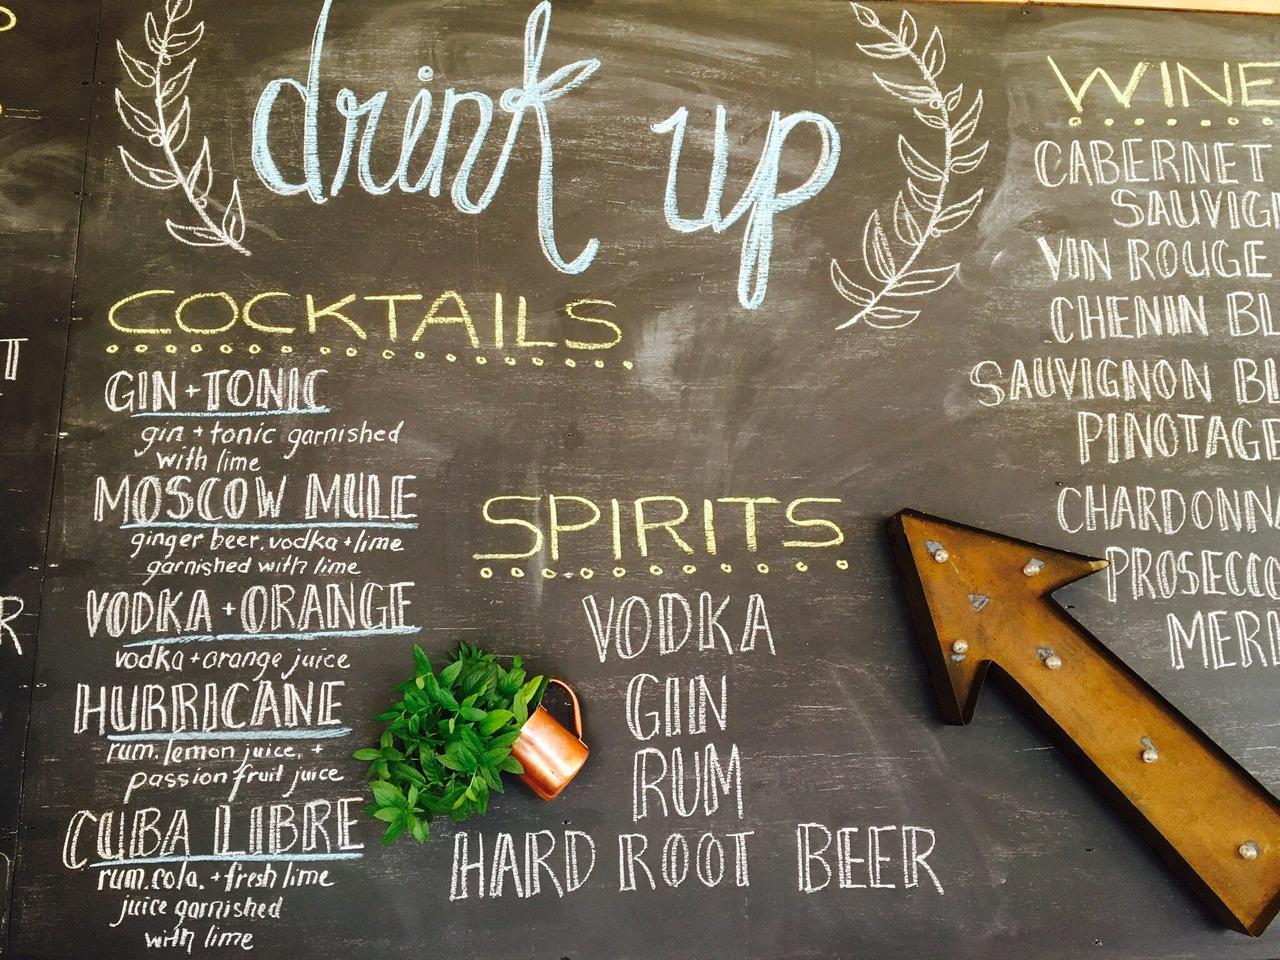 drink up
COCKTAILS
GIN + TONIC
gin + tonic garnished
with lime
MOSCOW MULE
ginger beer, vodka + lime
garnished with lime
VODKA + ORANGE
vodka + orange juice
HURRICANE
rum, lemon juice, +
passion fruit juice
CUBA LIBRE
rum, cola, + fresh lime
juice garnished
with lime
SPIRITS
VODKA
GIN
RUM
HARD ROOT BEER
WINE
CABERNET
SAUVIG
VIN ROUGE
CHENIN BL
SAUVIGNON BL
PINOTAGE
CHARDONNA
PROSECCO
MERL